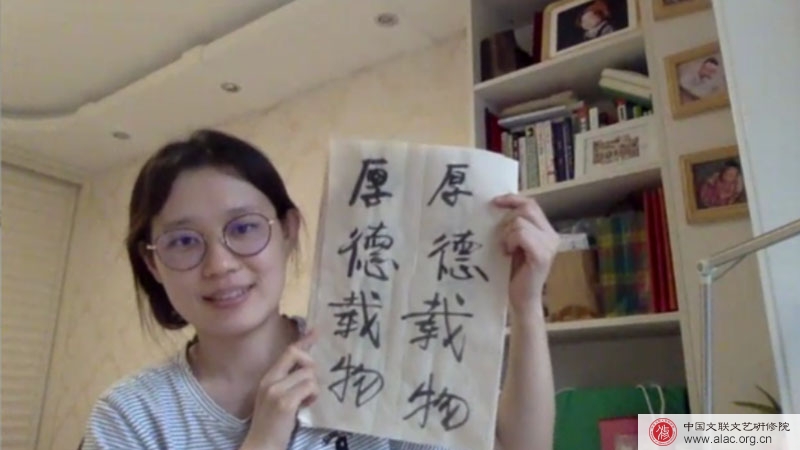 厚德载物
厚德载物
中国文联文艺研修院
www.alac.org.cn